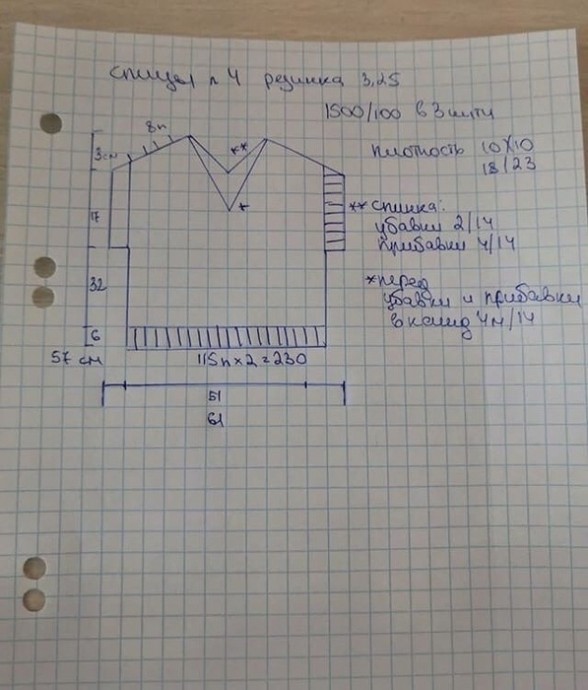 спицы n 4 резинка 3,25
1500/100 в 3 нити
8п
плотность 10х10
18/23
3см
**
*
17
** спинка:
убавки 2/14
прибавки 4/14
* перед
убавки и прибавки
в кажд 4м/14
32
6
57 см
115п x 2 = 230
51
61